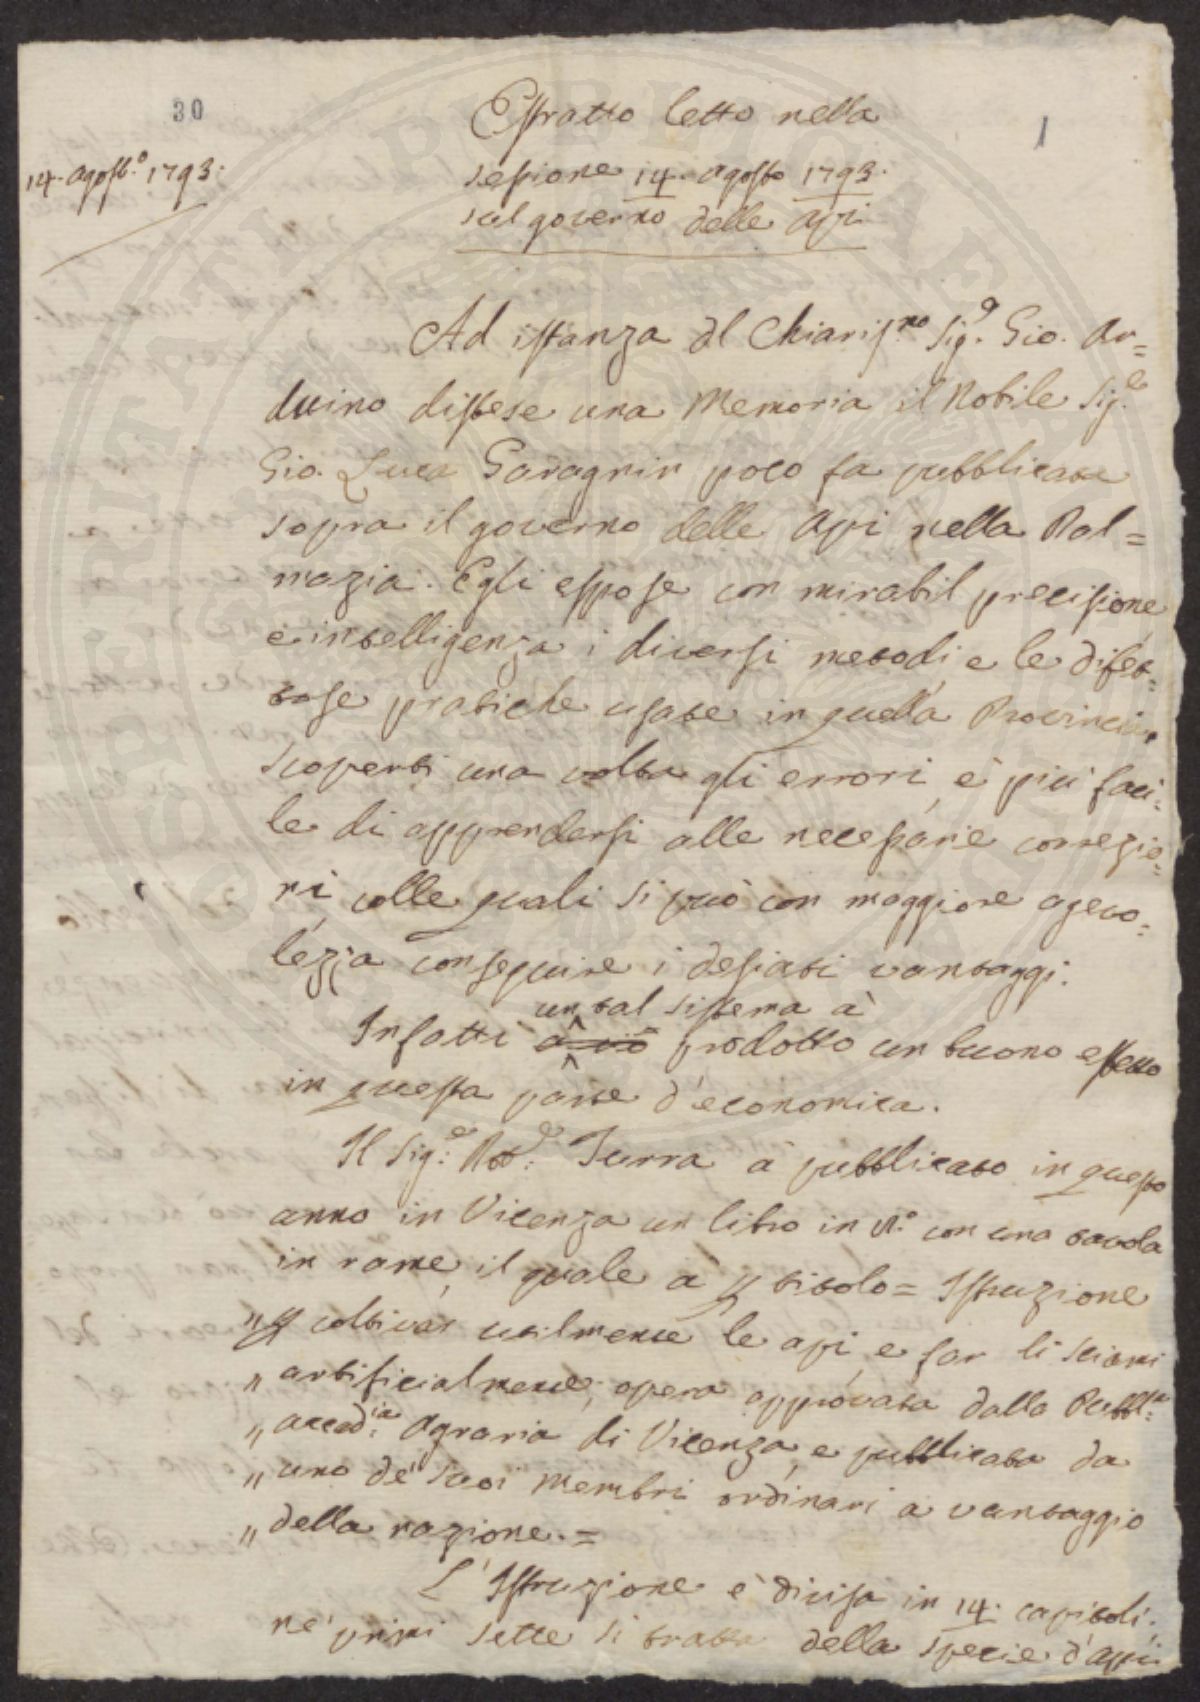 30
1
14. agost.º 1793.
Estratto letto nella
sessione 14. agosto 1793.
sul governo delle api
Ad istanza dl Chiaris.mo Sig.r Gio. Ar=
duino distese una Memoria il Nobile Sig.r
Gio. Luca Garagnin poco fa pubblicata
sopra il governo delle Api nella Dal=
mazia. Egli esspose con mirabil precisione
e intelligenza i diversi metodi, e le difet=
tose pratiche usate in quella Provincia,
scoperti una volta gli errori, è più faci=
le di apprendersi alle necessarie correzio=
ni, colle quali si può con maggiore agevo=
lezza conseguire i desiati vantaggi.
un tal sistema à
Infatti prodotto un buono effetto
in questa parte d'economica.
Il Sig.r Dot.r Turra à pubblicato in questo
anno in Vicenza un libro in con una tavola
in rame, il quale à p titolo = Istruzione
" p coltivar utilmente le api, e far li sciami
" artificialmente, opera approvata dalla Pubbl.a
" accad.ia Agraria di Vicenza, e pubblicata da
" uno de' suoi membri ordinari a vantaggio
" della nazione. =
L'Istruzione è divisa in 14. capitoli.
ne' primi sette si tratta della specie d'appi